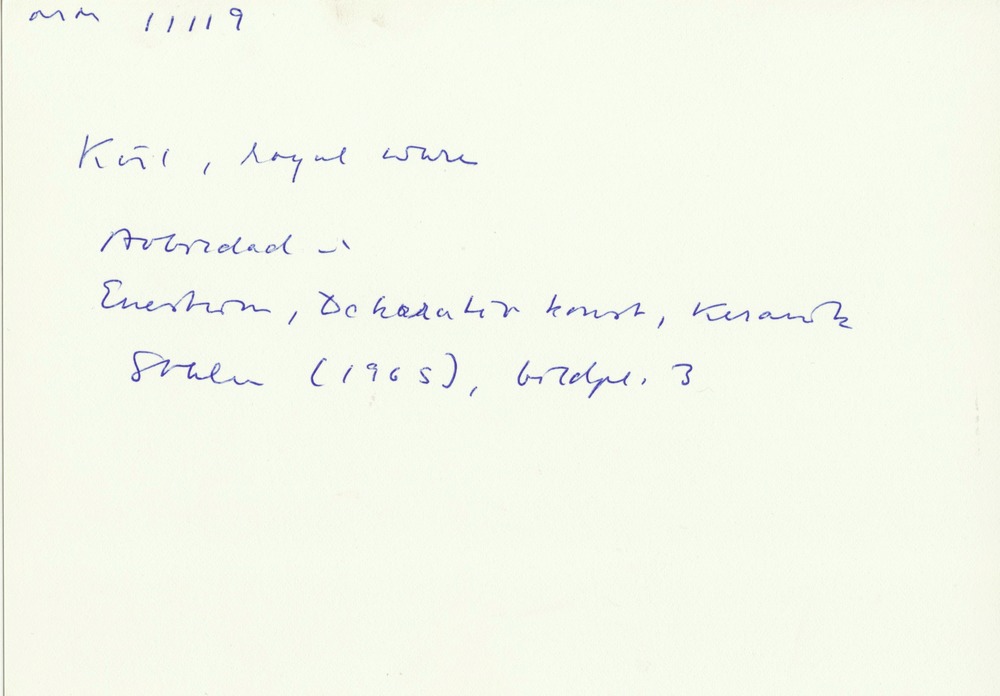 MM 11119
Kūil, royal ware
Avbildad i
Eneström, Dekorativ konst, Keramik
Sthlm (1965), bildpl. 3